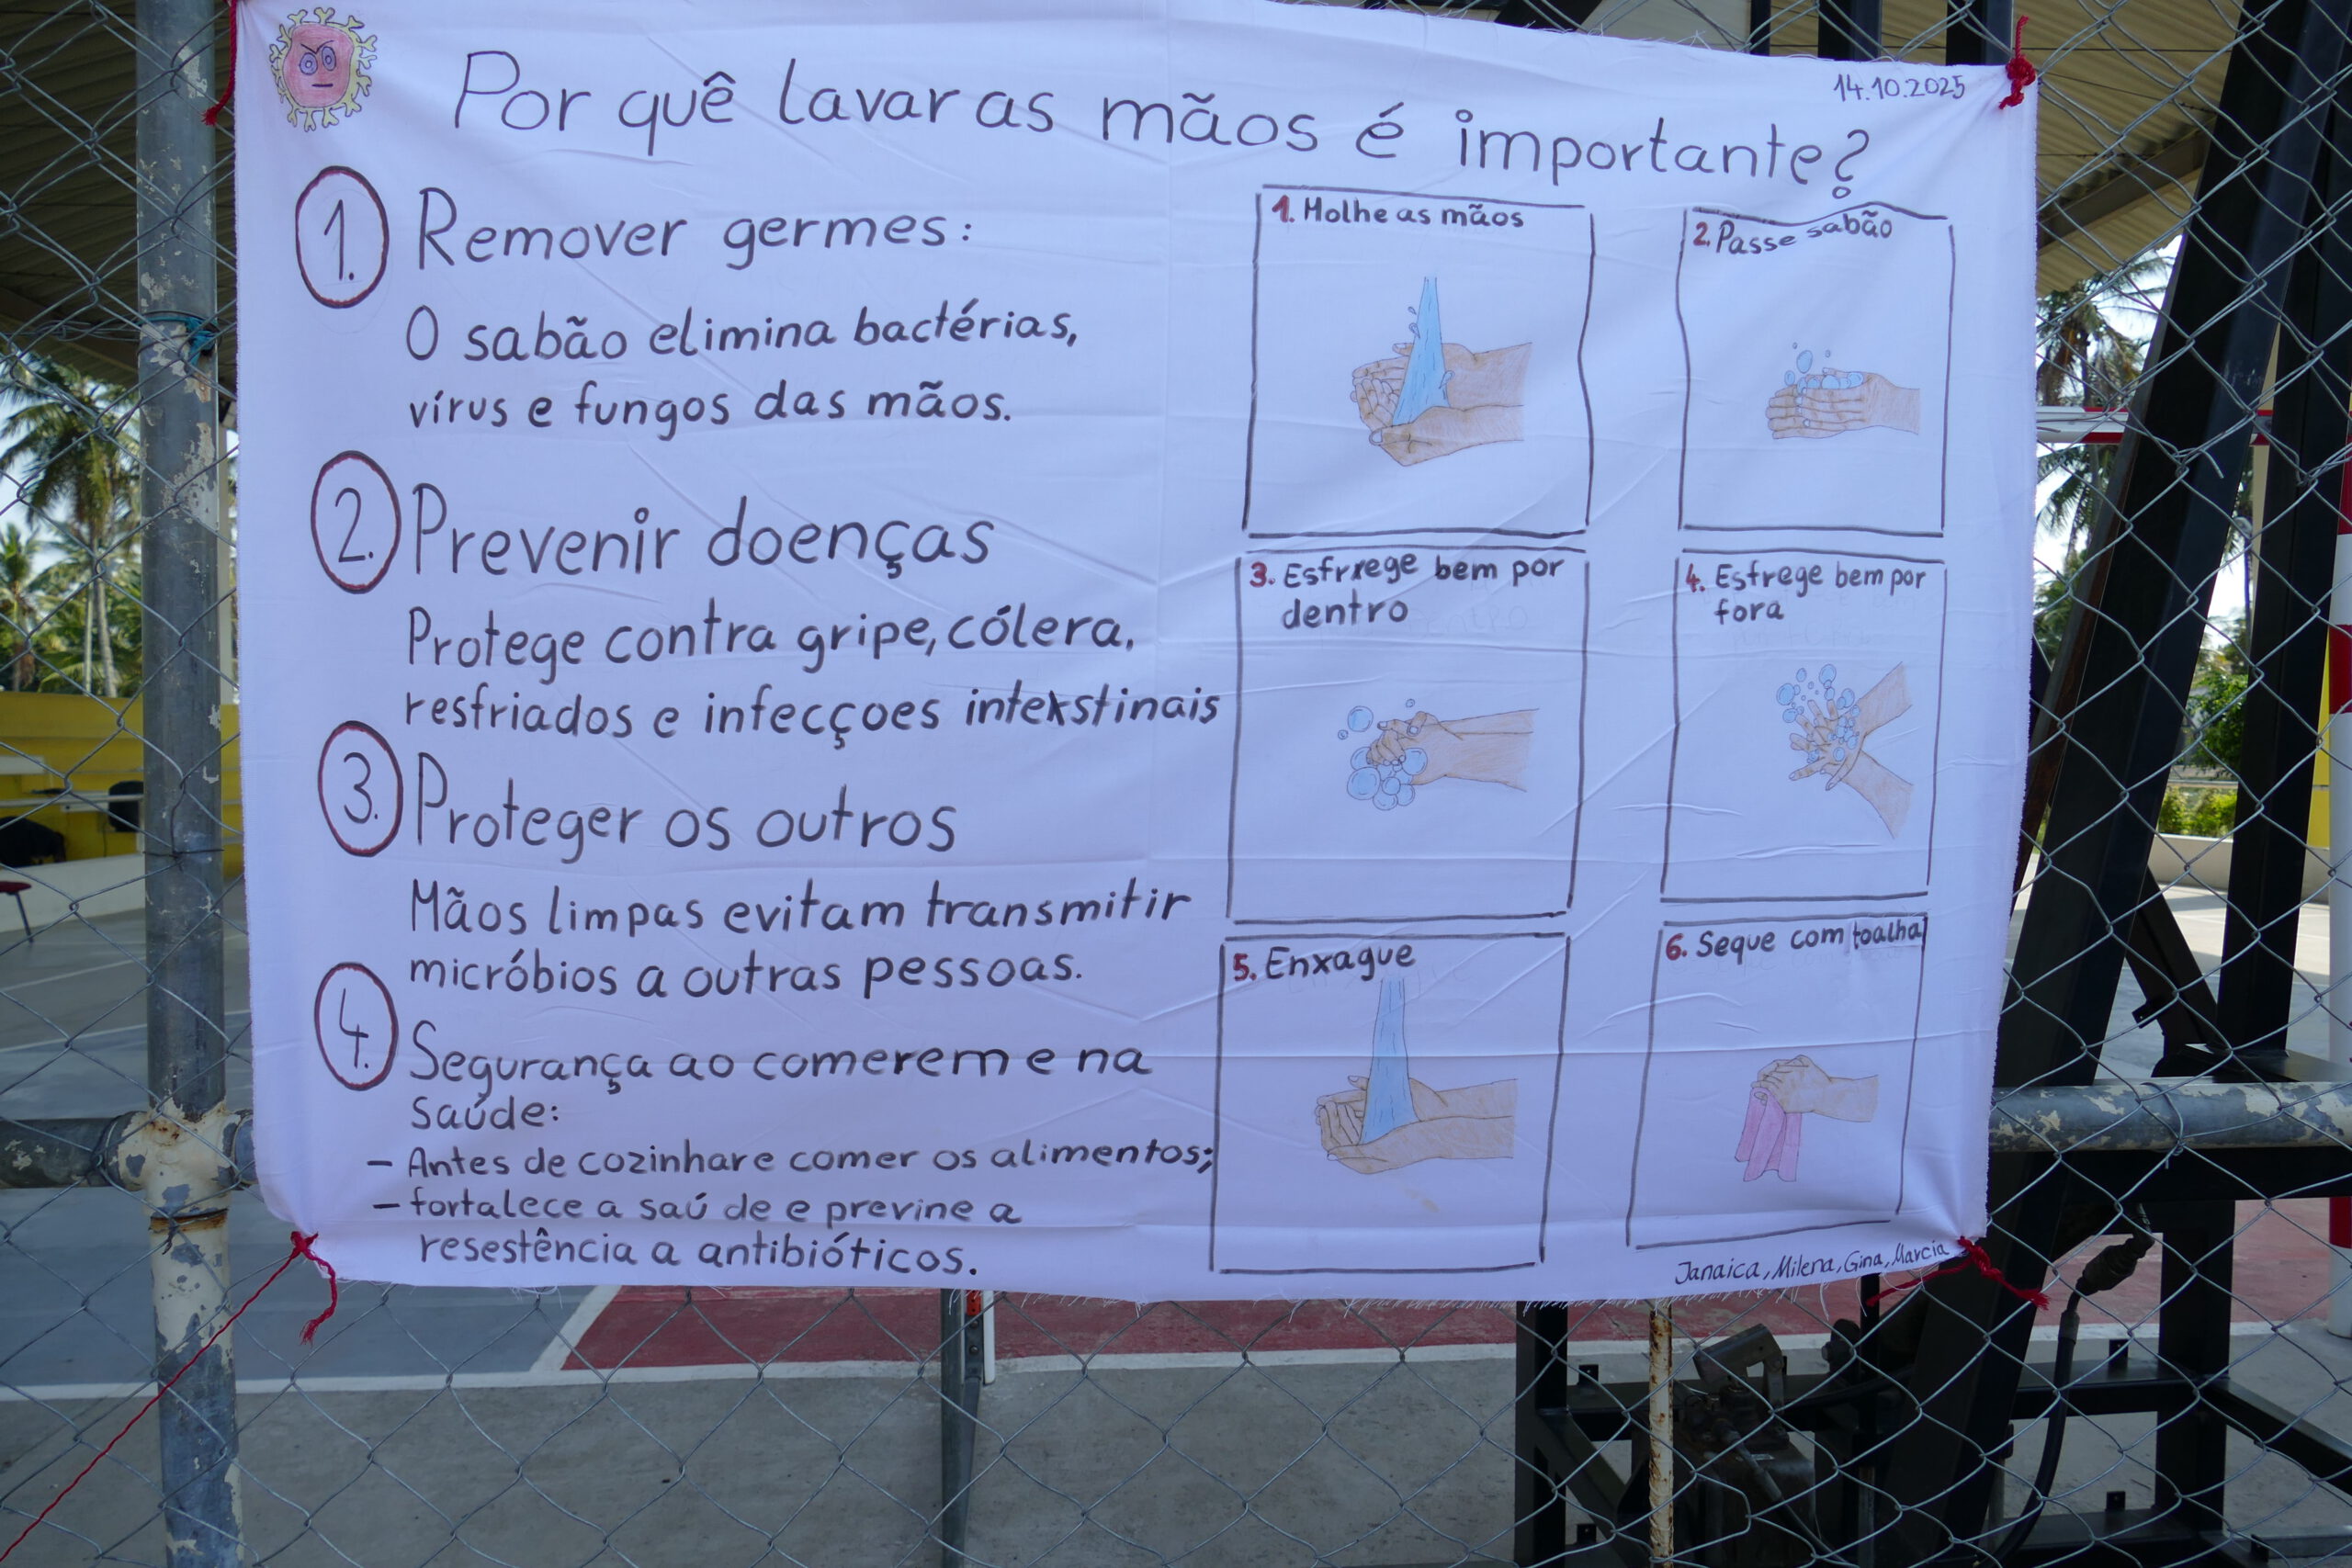 14.10.2025
Por quê lavar as mãos é importante?
1. Remover germes:
O sabão elimina bactérias,
vírus e fungos das mãos.
2. Prevenir doenças
Protege contra gripe, cólera,
resfriados e infecçoes intexstinais
3. Proteger os outros
Mãos limpas evitam transmitir
micróbios a outras pessoas.
4. Segurança ao comerem e na
saúde:
- Antes de cozinhar e comer os alimentos;
- fortalece a saúde e previne a
resestência a antibióticos.
1. Molhe as mãos
2. Passe sabão
3. Esfrxege bem por
dentro
4. Esfrege bem por
fora
5. Enxague
6. Seque com toalha
Janaica, Milena, Gina, Marcia